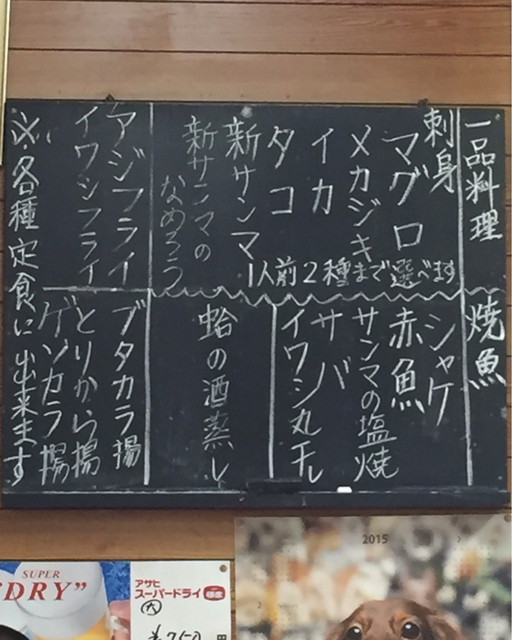 一品料理
刺身
マグロ
メカジキ
イカ
タコ
新サンマ
1人前2種まで選べます
新サンマの
なめろう
アジフライ
イワシフライ
焼魚
シャケ
赤魚
サンマの塩焼
サバ
イワシ丸干し
蛤の酒蒸し
ブタカラ揚
とりから揚
ゲソカラ揚
※各種定食に出来ます
SUPER
"DRY"
アサヒ
スーパードライ
大
円
2015